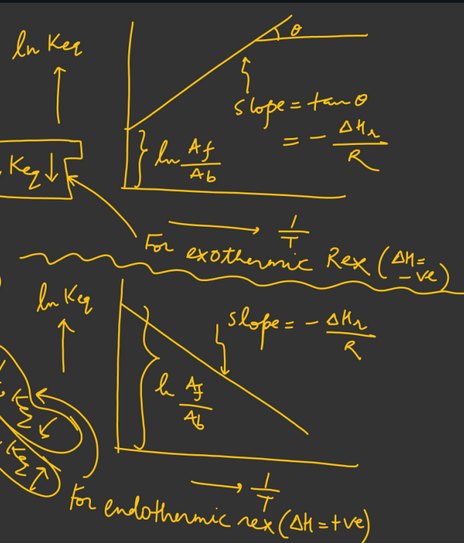 ln Keq
θ
slope = tan θ
= - ΔHr/R
ln Af/Ab
Keq ↓
→ 1/T
For exothermic Rex (ΔH = -ve)
ln Keq
slope = - ΔHr/R
ln Af/Ab
→ 1/T
For endothermic rex (ΔH = +ve)